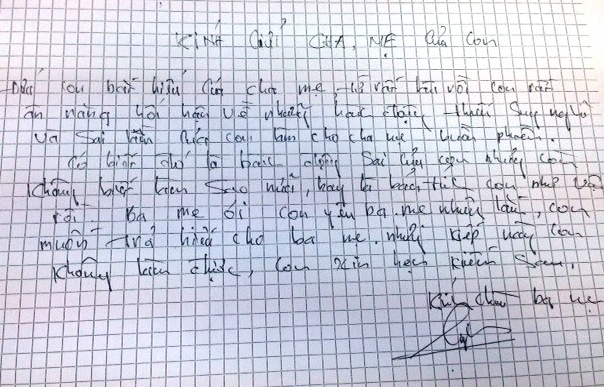 KÍNH GỬI CHA, MẸ CỦA CON
Đứa con bất hiếu của cha mẹ, con rất
ăn năng hối hận về những hành động thiếu suy nghĩ
và sai lầm của con làm cho cha mẹ buồn phiền.
biết đó là hành động sai của con nhưng con
không biết làm sao nữa, hay là bản tính con như vậy
rồi. Ba mẹ ơi con yêu ba mẹ nhiều lắm, con
muốn trả hiếu cho ba mẹ nhưng kiếp này con
không làm được, con xin hẹn kiếp sau.
Kính chào ba mẹ